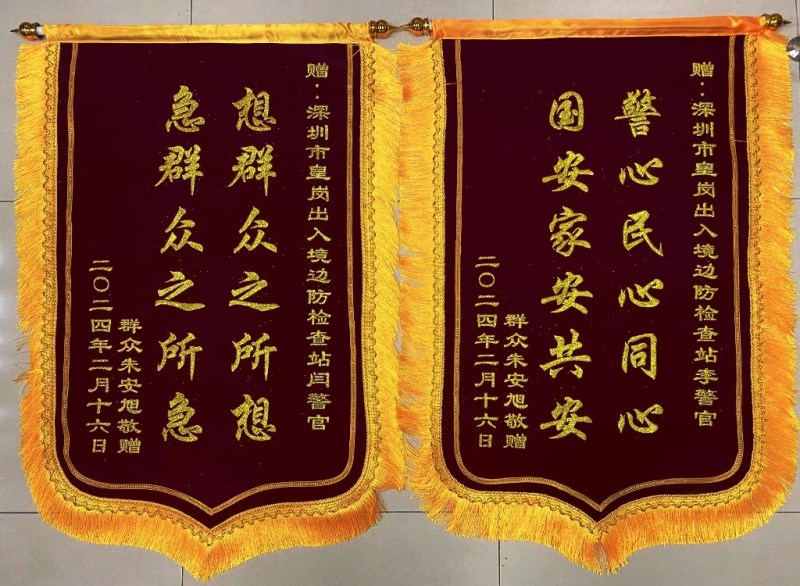 赠：深圳市皇岗出入境边防检查站闫警官
想群众之所想
急群众之所急
群众朱安旭敬赠
二〇二四年二月十六日
赠：深圳市皇岗出入境边防检查站李警官
警心民心同心
国安家安共安
群众朱安旭敬赠
二〇二四年二月十六日